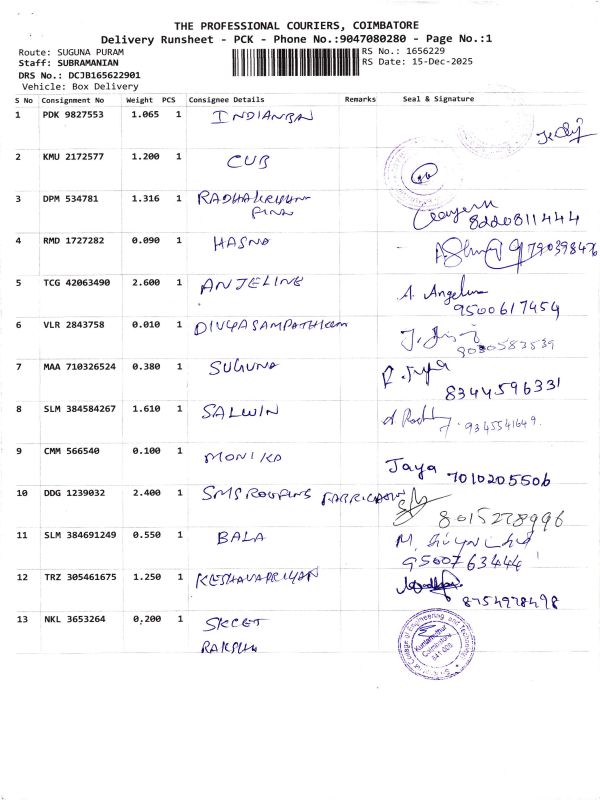 THE PROFESSIONAL COURIERS, COIMBATORE
Delivery Runsheet - PCK - Phone No.:9047080280 - Page No.:1
Route: SUGUNA PURAM
Staff: SUBRAMANIAN
DRS No.: DCJB165622901
Vehicle: Box Delivery
RS No.: 1656229
RS Date: 15-Dec-2025
S No Consignment No Weight PCS Consignee Details Remarks Seal & Signature
1 PDK 9827553 1.065 1 INDIANBAN
2 KMU 2172577 1.200 1 CUB
3 DPM 534781 1.316 1 RADHAKRISHNA
8220811444
4 RMD 1727282 0.090 1 HASNA
5 TCG 42063490 2.600 1 ANJELINE A. Angelina
9500617454
6 VLR 2843758 0.010 1 DIVYASAMPATHKUM
8030583539
7 MAA 710326524 0.380 1 SUGUNA
8344596331
8 SLM 384584267 1.610 1 SALWIN
9345541649.
9 CMM 566540 0.100 1 MONIKA Jaya 7010205506
10 DDG 1239032 2.400 1 SMS ROOFING FABRICATION
8015278996
11 SLM 384691249 0.550 1 BALA
9500763444
12 TRZ 305461675 1.250 1 KESHAVAPRIYAN
8754978498
13 NKL 3653264 0.200 1 SKCET
College of Engineering and Technology
Kuniamuthur
Coimbatore
641 008